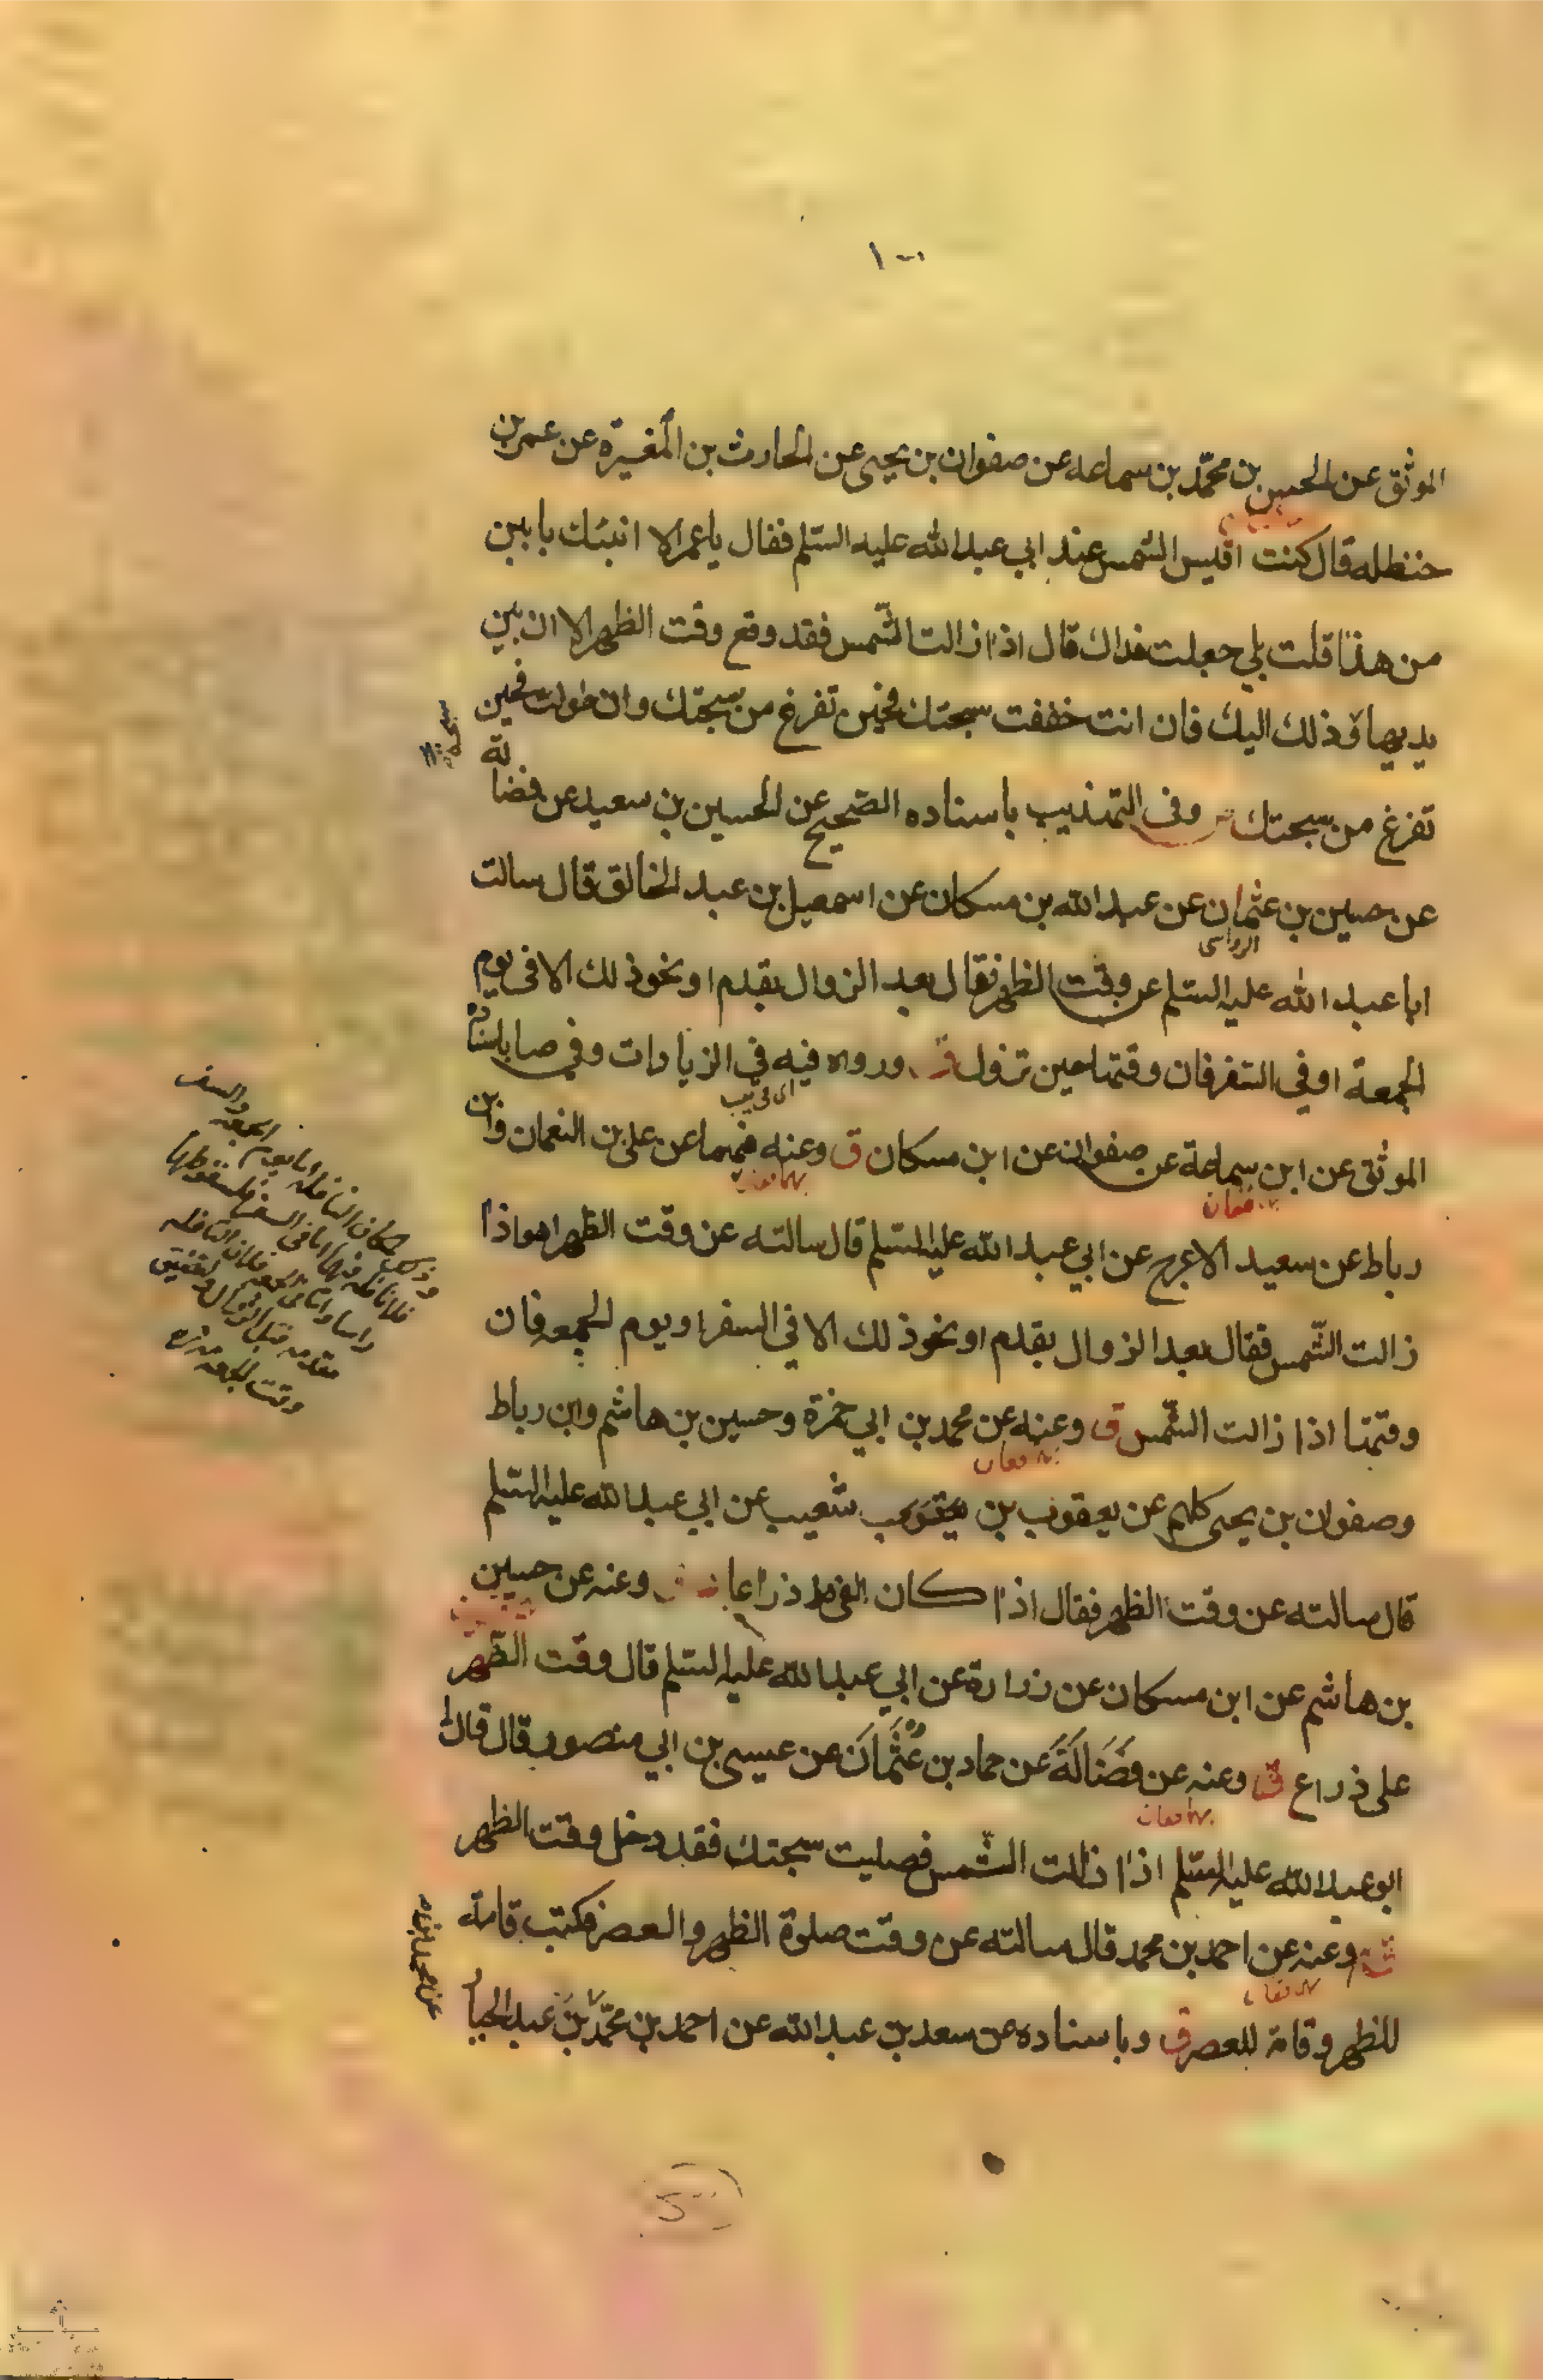 ١٠٠
الموثق عن الحسن بن محمّد بن سماعه عن صفوان بن يحيى عن الحارث بن المغيرة عن عمر بن
حنظله قال كنت اقيس الشمس عند ابي عبد الله عليه السّلم فقال يا عمر الا انبئك بابين
من هذا قلت بلي جعلت فداك قال اذا زالت الشّمس فقد وقع وقت الظهر الا ان بين
يديها وذلك اليك فان انت خففت سبحتك فحين تفرغ من سبحتك وان طولت فحين
تفرغ من سبحتك وفى التهذيب باسناده الصّحيح عن الحسين بن سعيد عن فضالة
عن حسين بن عثمان عن عبد الله بن مسكان عن اسمعيل بن عبد الخالق قال سالت
الرواسى
ابا عبد الله عليه السّلم عن وقت الظهر فقال بعد الزوال بقدم او نحو ذلك الا فى يوم
الجمعة او في السّفر فان وقتها حين تزول ورواه فيه في الزيارات وفي صا باسناده
الموثق عن ابن سماعة عن صفوان عن ابن مسكان ق وعنه فيهما عن على بن النعمان وابن
رباط عن سعيد الاعرج عن ابي عبد الله عليه السّلم قال سالته عن وقت الظهر اهو اذا
زالت الشّمس فقال بعد الزوال بقدم او نحو ذلك الا في السفر او يوم الجمعه فان
وقتها اذا زالت الشّمس ق وعنه عن محمد بن ابي حمزة وحسين بن هاشم وابن رباط
وصفوان بن يحيى كلهم عن يعقوب بن شعيب عن ابي عبد الله عليه السّلم
قال سالته عن وقت الظهر فقال اذا كان الفئ ذراعا وعنه عن حسين
بن هاشم عن ابن مسكان عن زرارة عن ابي عبد الله عليه السّلم قال وقت الظهر
على ذراع ق وعنه عن فَضَالَةَ عن حماد بن عُثْمَانَ عن عيسى بن ابي منصور قال قال لى
ابو عبد الله عليه السّلم اذا زالت الشّمس فصليت سبحتك فقد دخل وقت الظهر
وعنه عن احمد بن محمد قال سالته عن وقت صلوة الظهر والعصر فكتب قامة
للظهر وقامة للعصر ق وباسناده عن سعد بن عبد الله عن احمد بن محمّد بن عبد الجبار